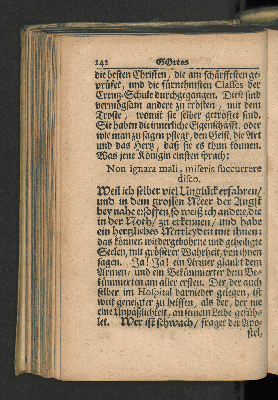 142 GOttes
die besten Christen, die am schärffesten ge-
prüfet, und die fürnehmsten Classes der
Creutz-Schule durchgegangen. Diese sind
vermögsam andere zu trösten, mit dem
Troste, womit sie selber getröstet sind.
Sie haben die innerliche Eigenschafft, oder
wie man zu sagen pfleget, den Geist, die Art
und das Hertz, daß sie es thun können.
Was jene Königin einsten sprach:
Non ignara mali, miseris succurrere
disco.
Weil ich selber viel Unglück erfahren/
und in dem grossen Meer der Angst
bey nahe ersoffen so weiß ich andere die
in der Noth/ zu erkennen/ und habe
ein hertzliches Mittleyden mit ihnen:
das können wiedergebohrne und geheiligte
Seelen, mit grösserer Wahrheit, von ihnen
sagen. Ja! Ja! ein Armer glaubt dem
Armen, und ein Bekümmerter dem Be-
kümmerten am aller ersten. Der der auch
selber im Hospital darnieder gelegen, ist
weit geneigter zu helffen, als der, der nie
eine Unpäßlichkeit, an seinem Leibe gefüh-
let. Wer ist schwach/ fraget der Apo-
stel,